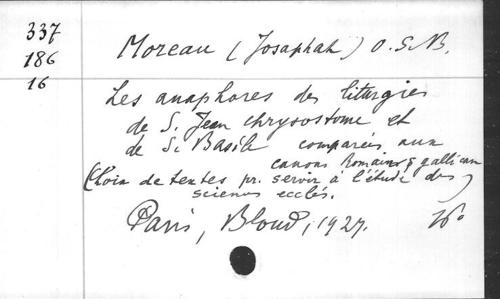 337
186
16
Moreau (Josaphat) O.S.B.
Les anaphores des liturgies
de S. Jean chrysostome et
de S. Basile comparées aux
canons Romains & gallican
(Choix de textes pr. servir à l'étude des
sciences ecclés.
Paris, Bloud, 1927. 16°